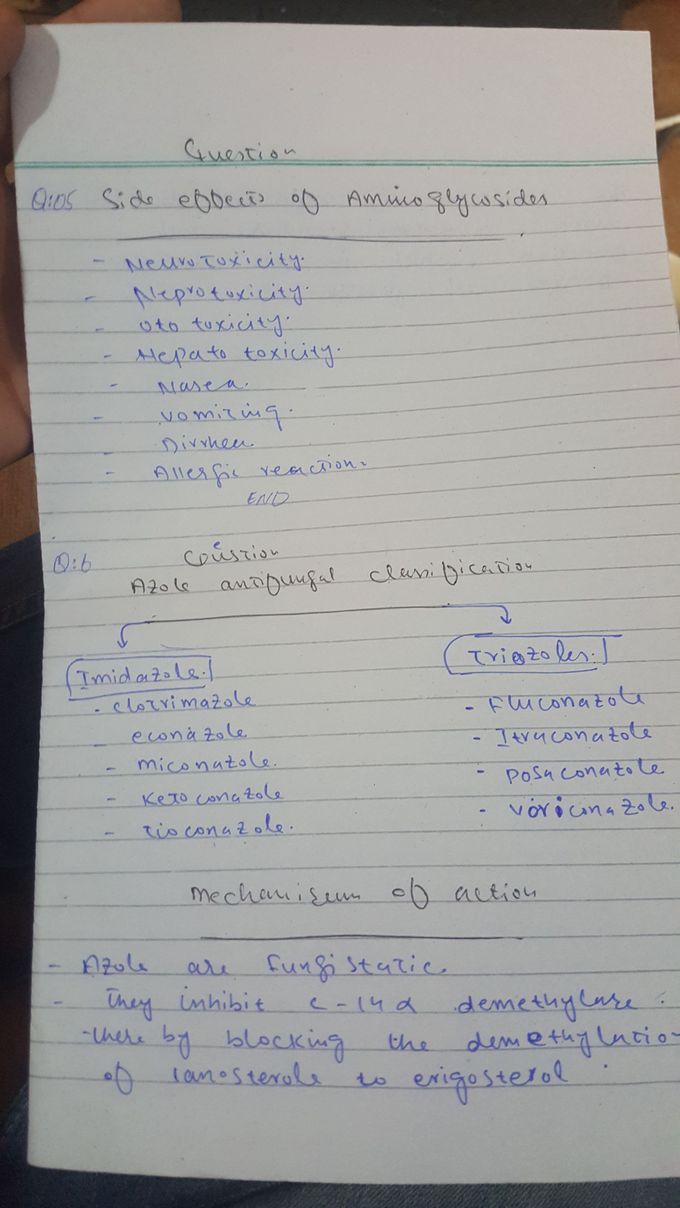 Question
Q:05 Side effects of Aminoglycosides
- Neurotoxicity.
- Neprotoxicity.
- oto toxicity.
- Hepato toxicity.
- Nasea.
- vomiting.
- Dirrhea.
- Allergic reaction.
END
Q:6 Coustion
Azole antifungal classification
Imidazole. Triazoles.
- clotrimazole - Fluconazole
- econazole - Itraconazole
- miconazole. - posaconazole
- Keto conazole - voriconazole.
- tioconazole.
mechanisum of action
- Azole are fungistatic.
- They inhibit c-14α demethylase.
- there by blocking the demethylatio
of lanosterole to erigosterol.